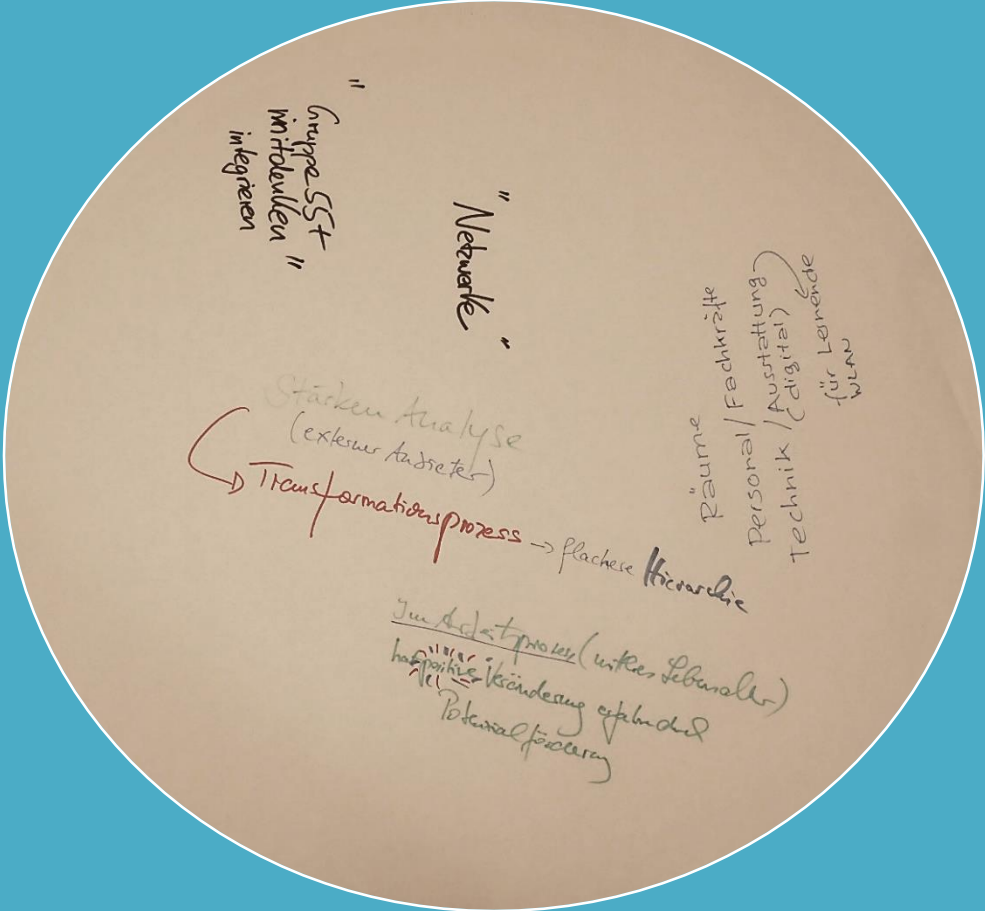 "Gruppe 55+
mitdenken"
integrieren
"Netzwerke"
Räume
Personal/Fachkräfte
Technik/Ausstattung
(digital)
für Lernende
WLAN
Stärken Analyse
(externer Anbieter)
Transformationsprozess → flachere Hierarchie
Im Arbeitsprozess (mittleres Lebensalter)
hat positive Veränderung erfahren durch
Potenzialförderung